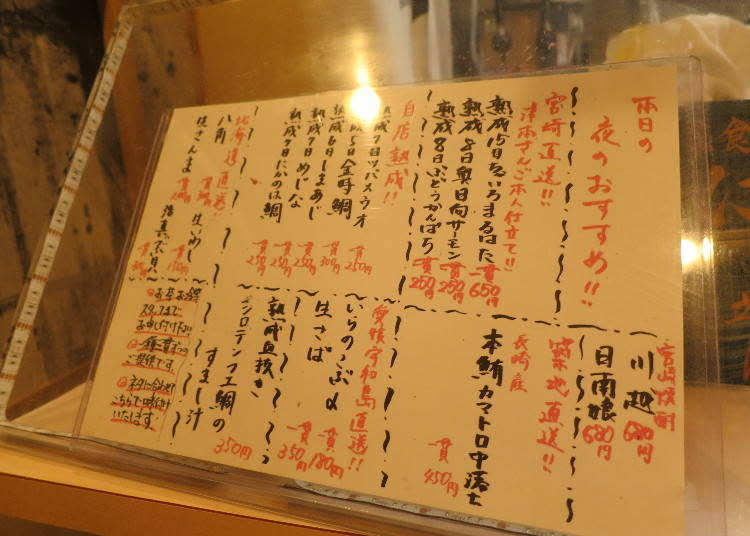 本日の
夜のおすすめ!!
宮崎直送!!
津本さんご本人仕立て!!
熟成15日
まるはた
一貫650円
熟成8日奥日向サーモン
一貫250円
熟成8日ぶどうかんぱち
一貫250円
自店熟成!!
熟成7日ツバスウオ
一貫250円
熟成5日金時鯛
一貫300円
熟成6日しまあじ
一貫250円
熟成7日めじな
一貫250円
熟成7日たかのは鯛
一貫250円
北海道直送!!
八角
生いわし
一貫150円
生さんま
宮崎焼酎
川越
680円
日南娘
680円
築地直送!!
長崎産
本鮪カマトロ中落ち
一貫450円
愛媛宇和島直送!!
生さば
一貫180円
一貫350円
熟成
フエ鯛の
すまし汁
350円
スタッフまで
お申し付け下さい
一種一貫ずつの
ご提供です。
ネタに合わせて
こちらで味付け
いたします